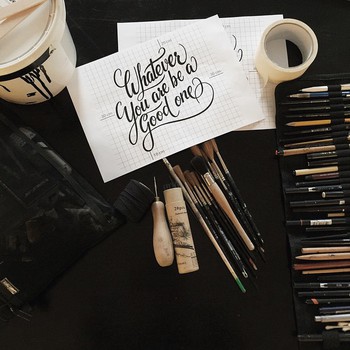 Whatever
You are be a
Good one